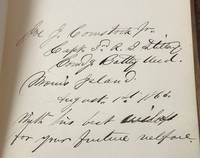 Jos. J. Comstock Jr.
Capt. 3d R. I. Arty.
Comdg Batty
Morris Island.
August 1st 1866.
With his best wishes
for your future welfare.